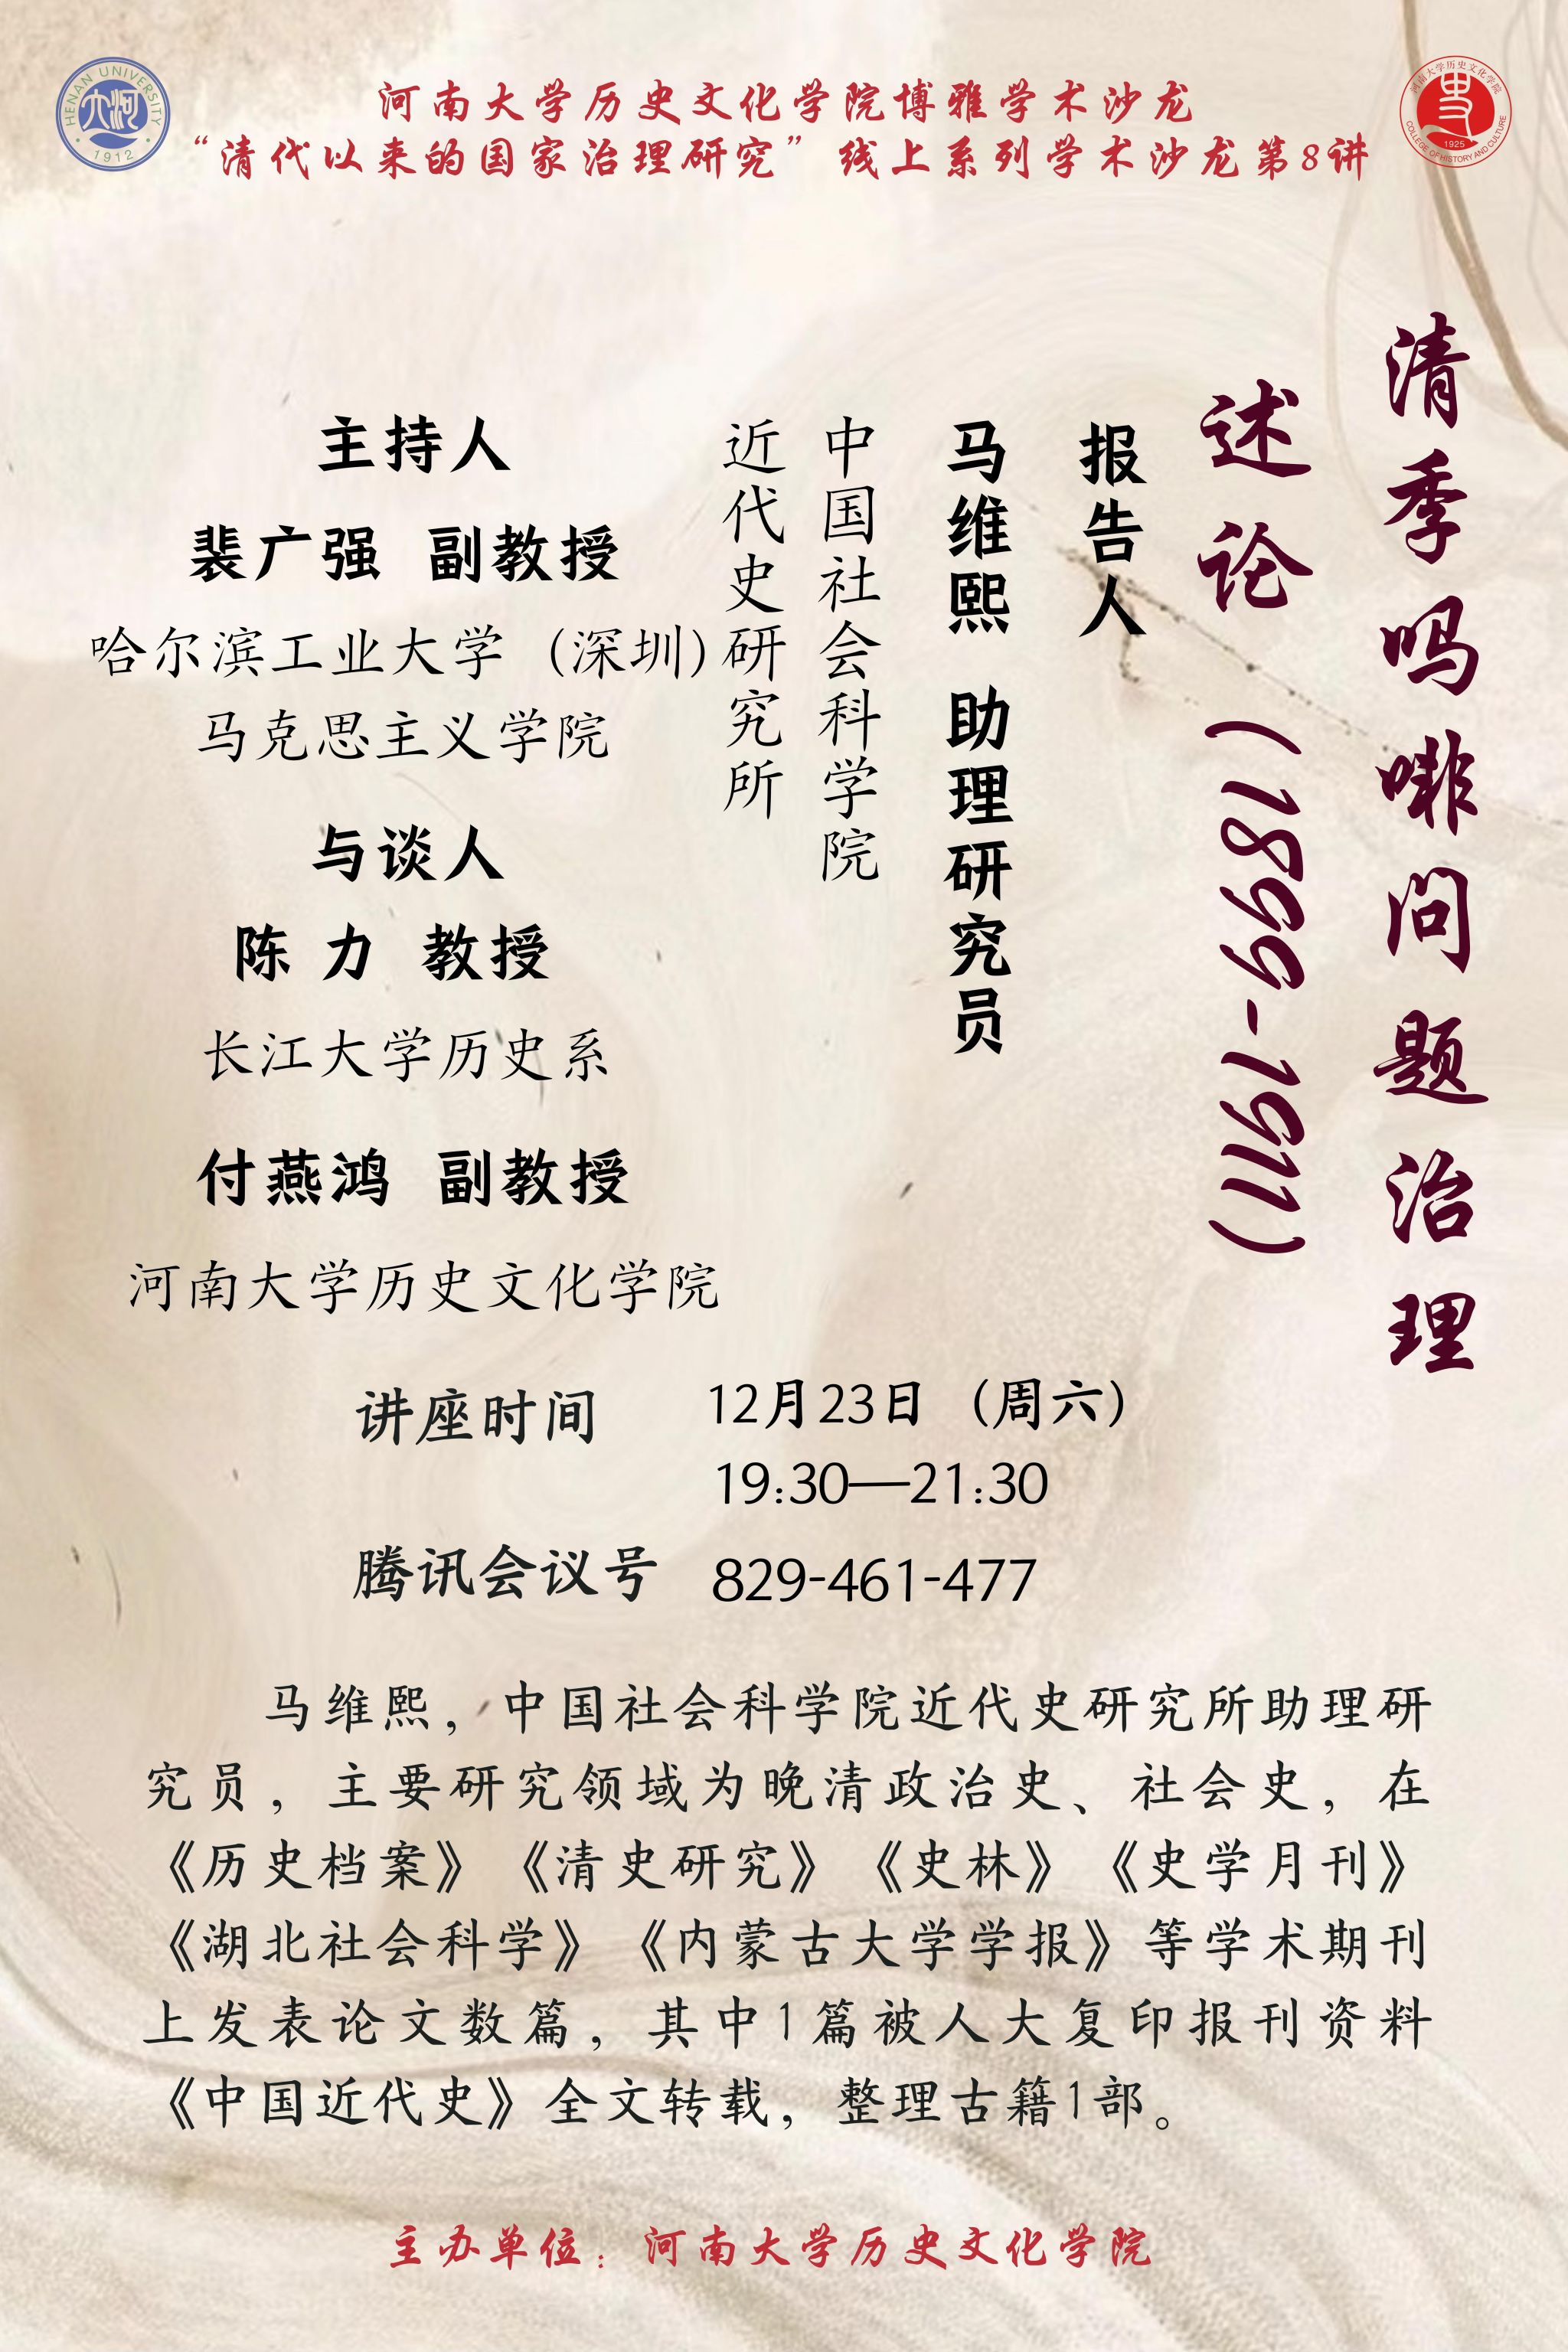 HENAN UNIVERSITY
大河
1912
河南大学历史文化学院博雅学术沙龙
“清代以来的国家治理研究”线上系列学术沙龙第8讲
河南大学历史文化学院
史
1925
COLLEGE OF HISTORY AND CULTURE
清季吗啡问题治理
述论（1899-1911）
报告人
马维熙 助理研究员
中国社会科学院
近代史研究所
主持人
裴广强 副教授
哈尔滨工业大学（深圳）
马克思主义学院
与谈人
陈 力 教授
长江大学历史系
付燕鸿 副教授
河南大学历史文化学院
讲座时间 12月23日（周六）
19:30—21:30
腾讯会议号 829-461-477
马维熙，中国社会科学院近代史研究所助理研
究员，主要研究领域为晚清政治史、社会史，在
《历史档案》《清史研究》《史林》《史学月刊》
《湖北社会科学》《内蒙古大学学报》等学术期刊
上发表论文数篇，其中1篇被人大复印报刊资料
《中国近代史》全文转载，整理古籍1部。
主办单位：河南大学历史文化学院